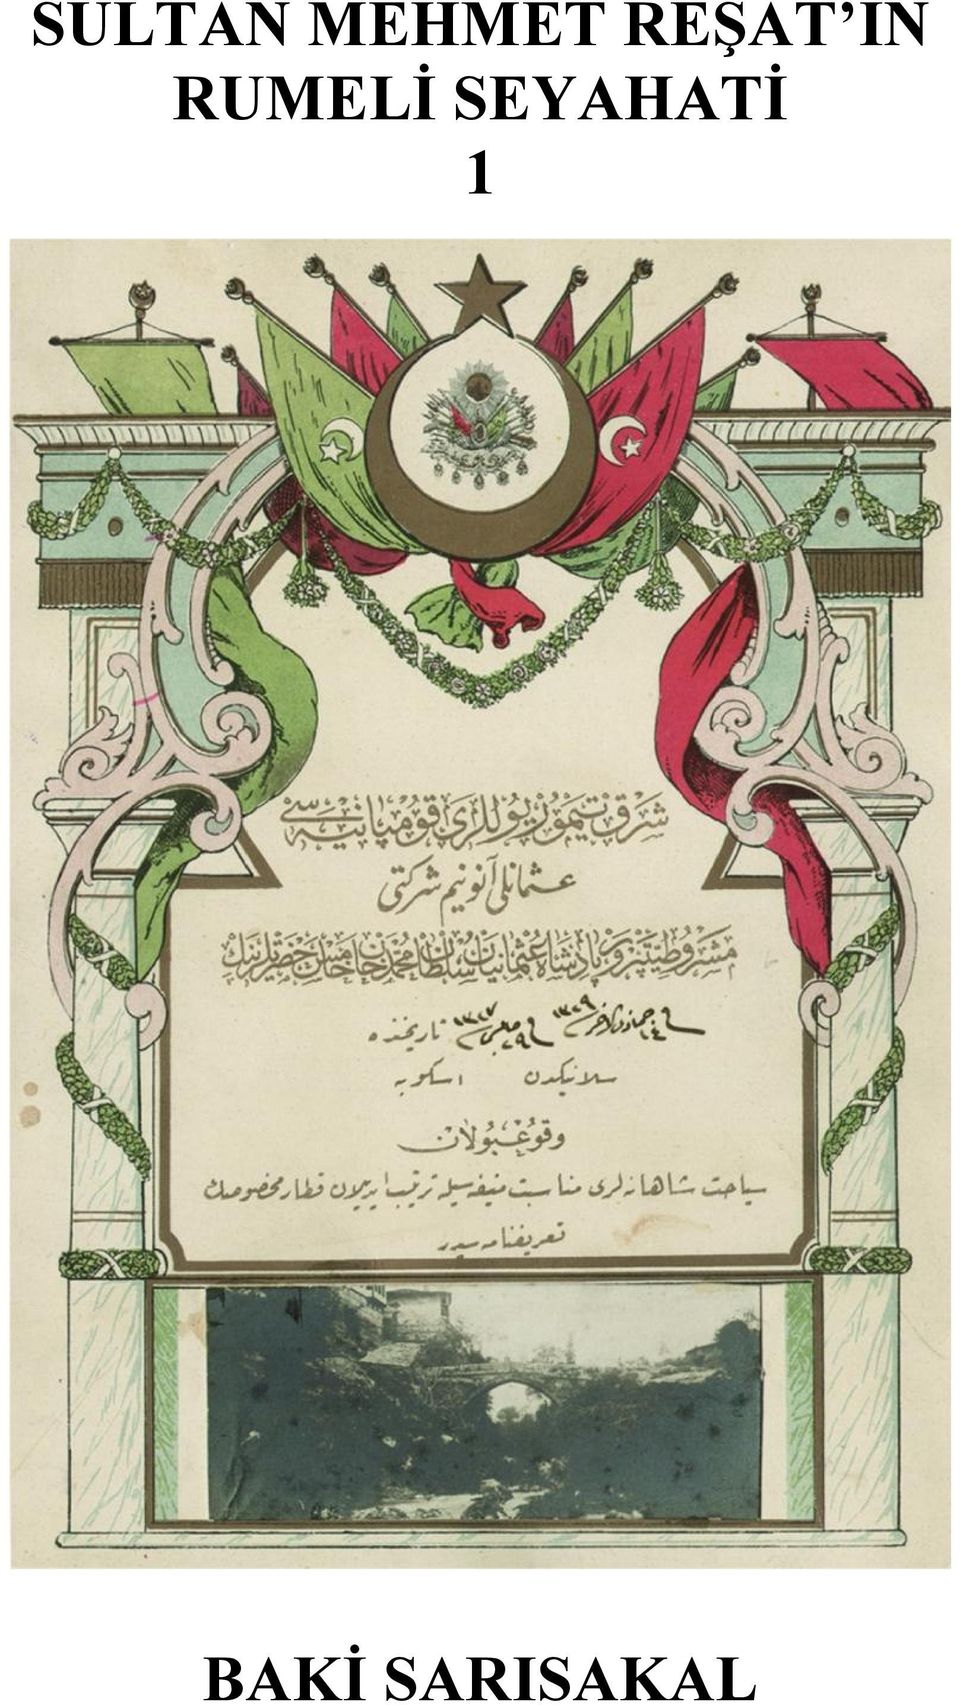 SULTAN MEHMET REŞAT’IN
RUMELİ SEYAHATİ
1
شرق تیمور یوللری قومپانیه سی
عثمانلی آنونیم شرکتی
مشروطیتپرور پادشاه عثمانیان سلطان محمد خان خامس حضرتلرینك
فی ١٤ جمادی الاخر ١٣٢٩ فی ٢٩ مایس ١٣٢٧ تاریخنده
سلانیکدن اسکوبه
وقوعبولان
سیاحت شاهانه لری مناسبت منیفه سیله ترتیب ایدیلان قطار مخصوصك
تعریفنامه سیدر
BAKİ SARISAKAL